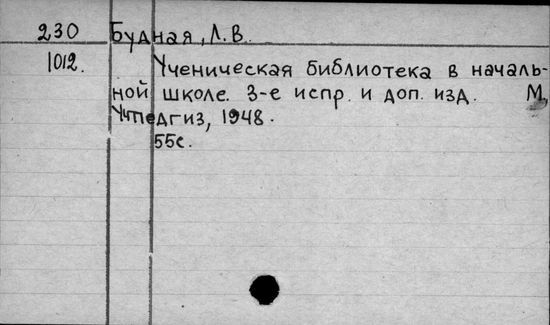 230 Будная, Л. В.
1012. Ученическая библиотека в началь-
ной школе. 3-е испр. и доп. изд. М,
Учпедгиз, 1948.
55с.